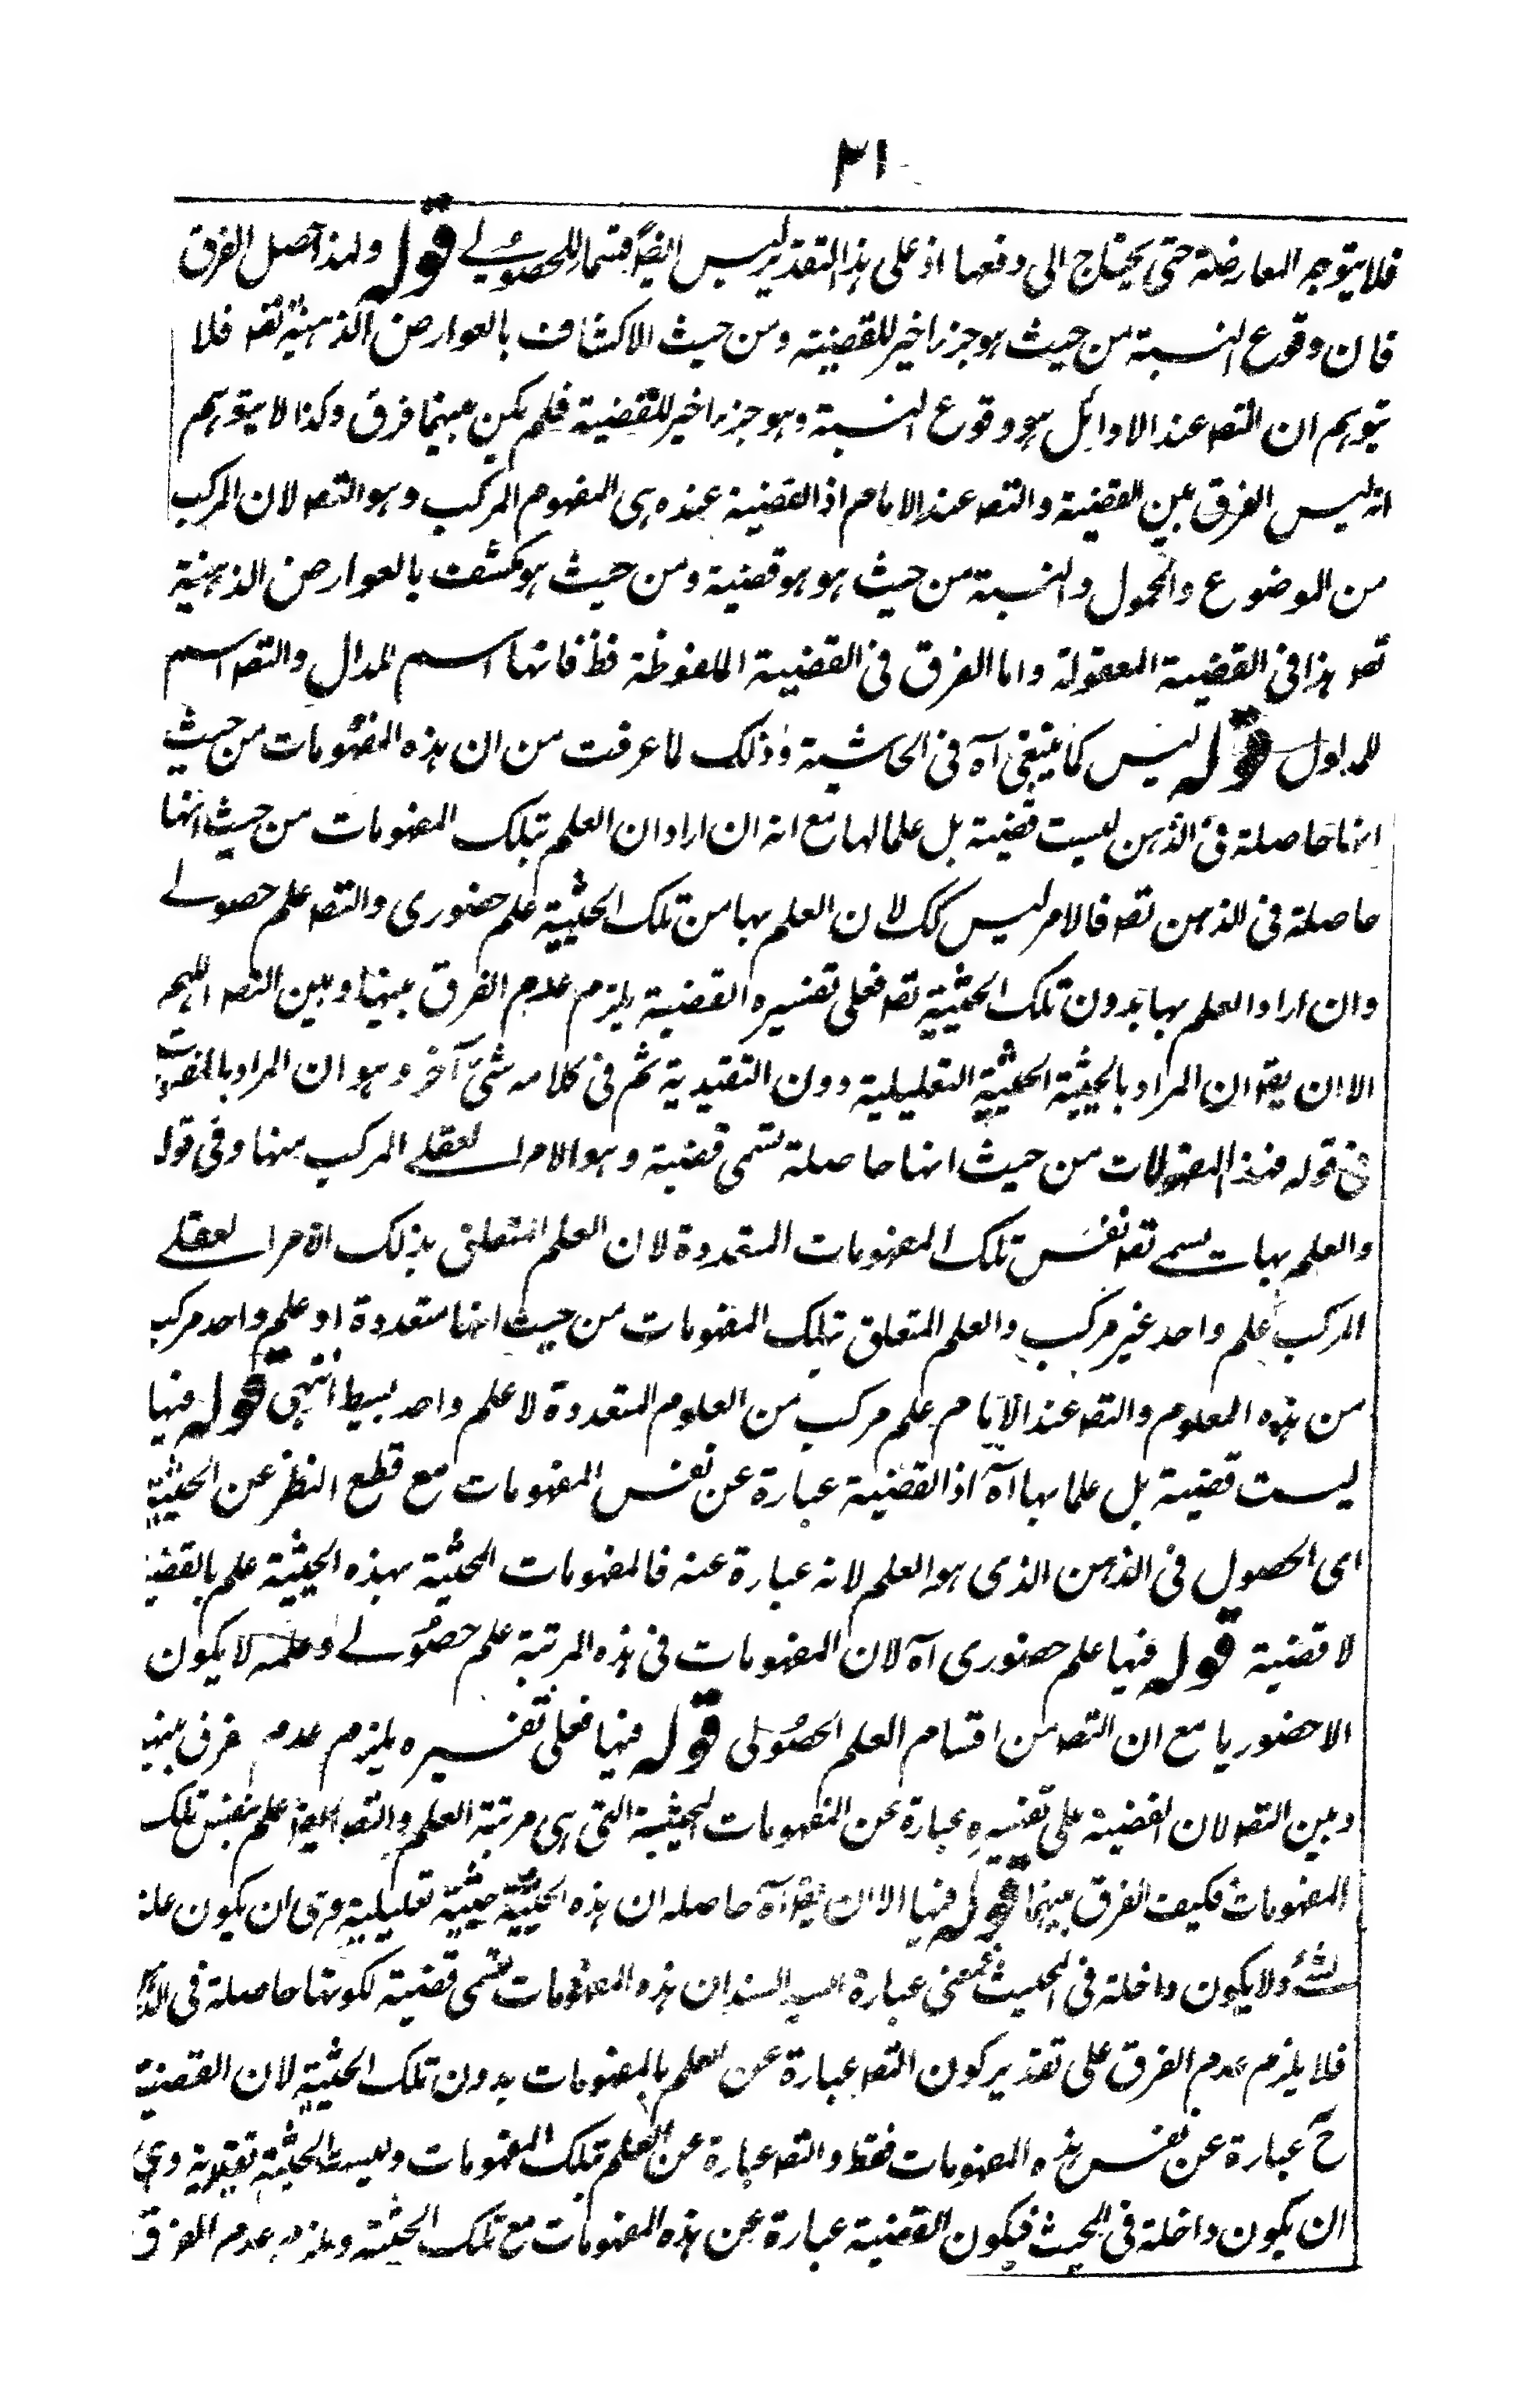 ٢١
فلا يتوجه المعارضة حتى يحتاج الى دفعها اذ على هذا التقدير ليس ايضا قسما للحصولے قوله ولهذا حصل الفرق
فان وقوع النسبة من حيث هو جزء اخير للقضية ومن حيث الاكتشاف بالعوارض الذهنية تصد فلا
يتوهم ان التصد عند الاوائل هو وقوع النسبة وهو جزء اخير للقضية فلم يكن بينهما فرق وكذا لا يتوهم
انه ليس الفرق بين القضية والتصد عند الامام اذ القضية عنده هى المفهوم المركب وهو التصد لان المركب
من الموضوع والمحمول والنسبة من حيث هو هو قضية ومن حيث هو مكتنف بالعوارض الذهنية
تصد هذا فى القضية المعقولة واما الفرق فى القضية الملفوظة فظ فانها اسم للدال والتصد اسم
للمدلول قوله ليس كما ينبغى آه فى الحاشية وذلك لما عرفت من ان هذه المفهومات من حيث
انها حاصلة فى الذهن ليست قضية بل علما لها مع انه ان اراد ان العلم بتلك المفهومات من حيث انها
حاصلة فى الذهن تصد فالامر ليس كك لان العلم بها من تلك الحيثية علم حضورى والتصد علم حصولے
وان اراد العلم بها بدون تلك الحيثية تصد فعلى تفسيره القضية يلزم عدم الفرق بينها وبين التصد اللهم
الا ان يقو ان المراد بالحيثية الحيثية التعليلية دون التقيدية ثم فى كلامه شئ آخر وهو ان المراد بالمفهومات
فى قوله فهذه المفهومات من حيث انها حاصلة تسمى قضية وهو الامر العقلے المركب منها وفى قوله
والعلم بها تسمے تصد نفس تلك المفهومات المتعددة لان العلم المتعلق بذلك الامر العقلے
المركب علم واحد غير مركب والعلم المتعلق بتلك المفهومات من حيث انها متعددة او علم واحد مركب
من هذه المعلوم والتصد عند الامام علم مركب من العلوم المتعددة لا علم واحد بسيط انتهى قوله فيها
ليست قضية بل علما بها آه اذ القضية عبارة عن نفس المفهومات مع قطع النظر عن الحيثية
اى الحصول فى الذهن الذى هو العلم لانه عبارة عنه فالمفهومات المحيثة بهذه الحيثية علم بالقضية
لا قضية قوله فيها علم حضورى آه لان المفهومات فى هذه المرتبة علم حصولے وعلمه لا يكون
الا حضوريا مع ان التصد من اقسام العلم الحصولى قوله فيها فعلى تفسيره يلزم عدم فرق بينها
وبين التصد لان القضية على تفسيره عبارة عن المفهومات المحيثية التى هى مرتبة العلم والتصد ايضا علم بنفس تلك
المفهومات فكيف الفرق بينهما قوله فيها الا ان يقو آه حاصله ان هذه الحيثية حيثية تعليلية وهى ان يكون علة
لشئ ولا يكون داخلة فى المحيث فمعنى عبارة السيد السند ان هذه المفهومات تسمى قضية لكونها حاصلة فى الذهن
فلا يلزم عدم الفرق على تقدير كون التصد عبارة عن العلم بالمفهومات بدون تلك الحيثية لان القضية
ح عبارة عن نفس هذه المفهومات فقط والتصد عبارة عن العلم بتلك المفهومات وليست الحيثية تقيدية وهى
ان يكون داخلة فى المحيث فيكون القضية عبارة عن هذه المفهومات مع تلك الحيثية ويلزم عدم الفرق